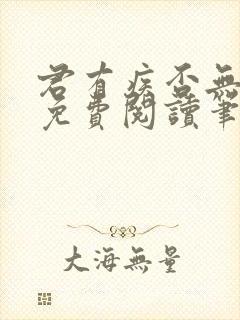 君有疾否無
免費閱讀筆
大海無量